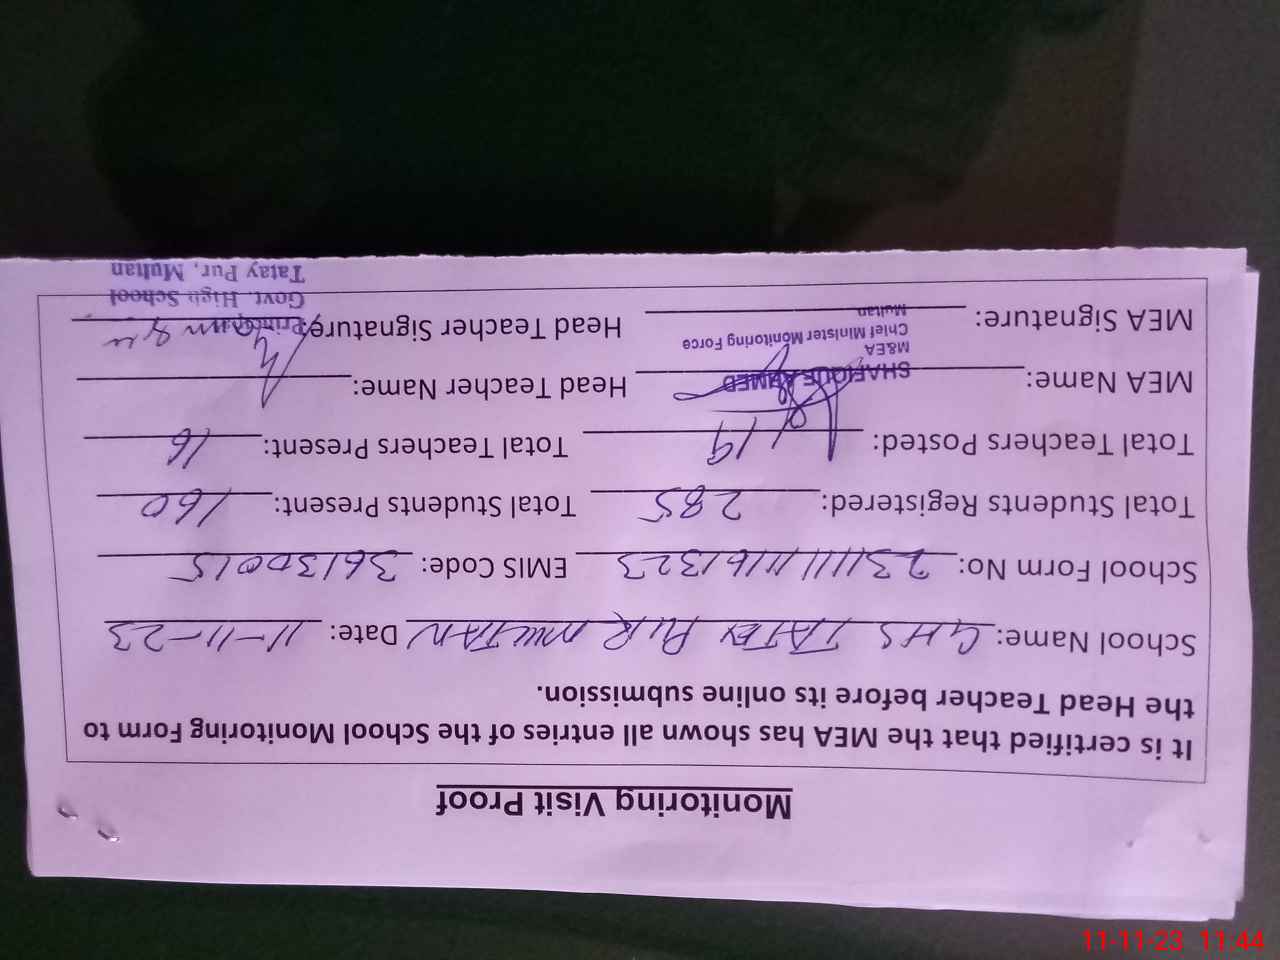 Monitoring Visit Proof
It is certified that the MEA has shown all entries of the School Monitoring Form to
the Head Teacher before its online submission.
School Name: GHS TATAY PUR MULTAN Date: 11-11-23
School Form No: EMIS Code: 36130015
Total Students Registered: 285 Total Students Present: 160
Total Teachers Posted: 19 Total Teachers Present: 16
MEA Name: SHAFIQUE AHMED Head Teacher Name:
M&EA
Chief Minister Monitoring Force
Multan
MEA Signature: Head Teacher Signature:
Principal
Govt. High School
Tatay Pur, Multan
11-11-23 11:44